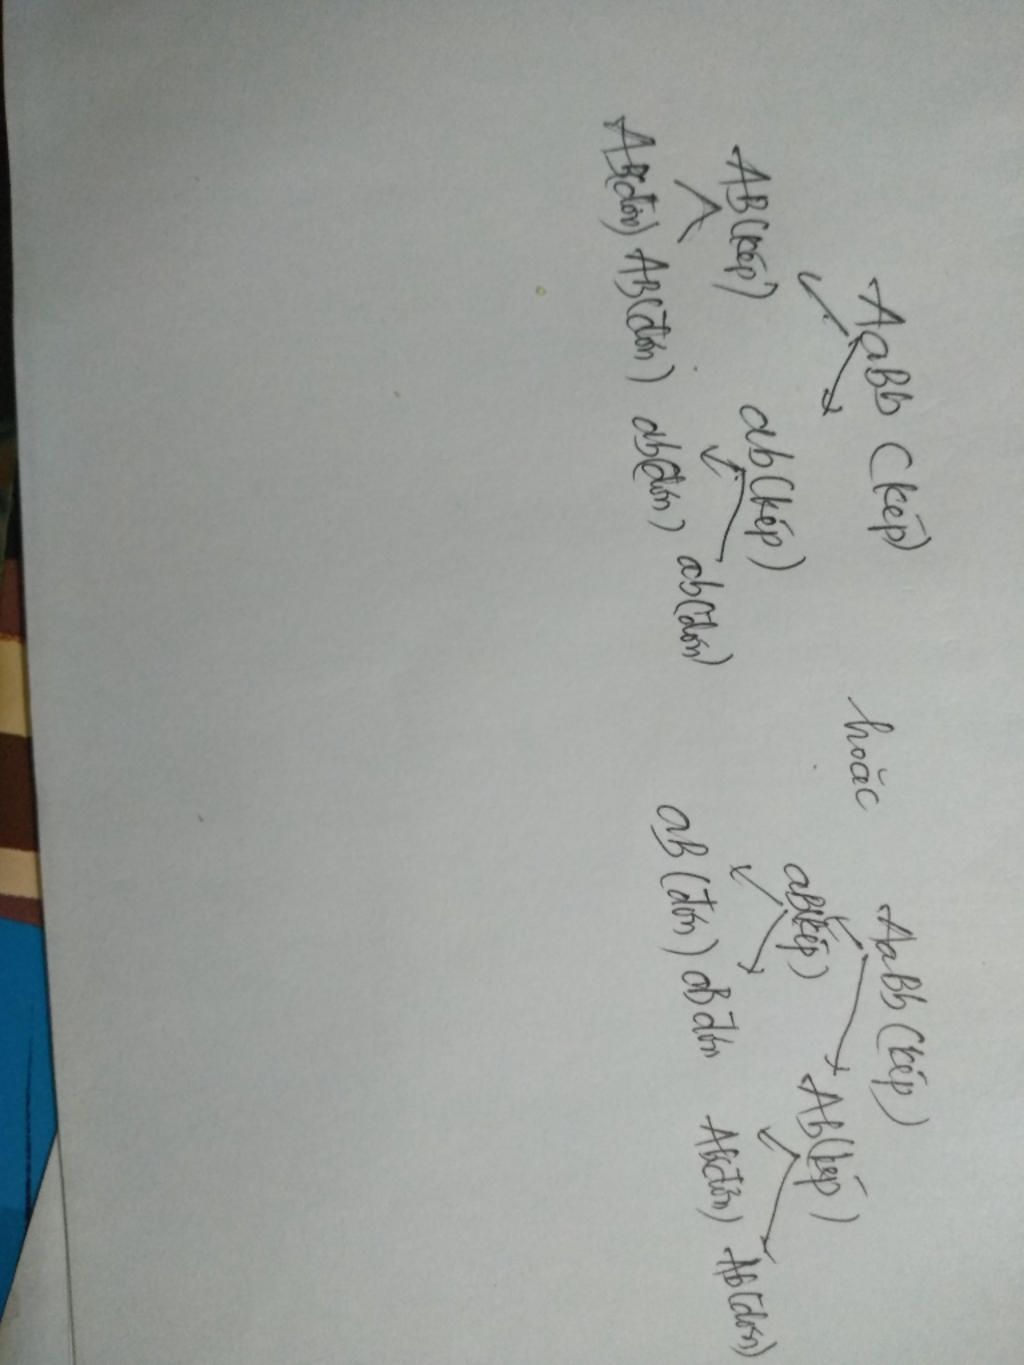 AaBb (kép) hoặc AaBb (kép)
AB (kép) ab (kép) aB (kép) Ab (kép)
AB (đơn) AB (đơn) ab (đơn) ab (đơn) aB (đơn) aB đơn Ab (đơn) Ab (đơn)